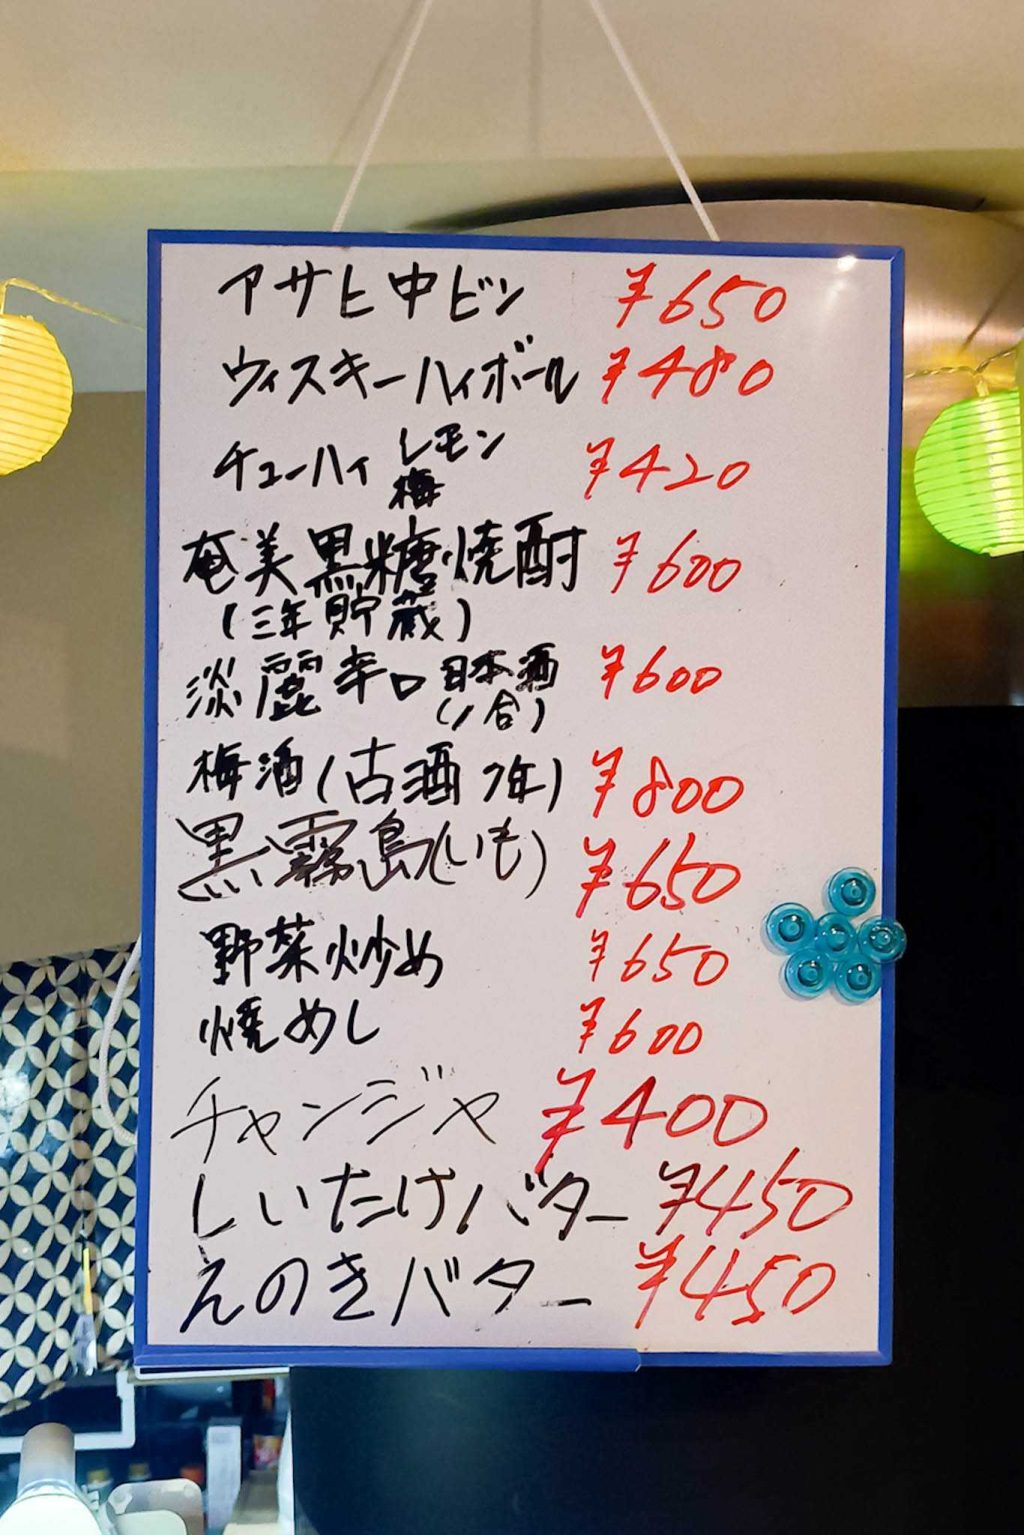 アサヒ中ビン ¥650
ウィスキーハイボール ¥480
チューハイ レモン ¥420
梅
奄美黒糖焼酎 ¥600
(三年貯蔵)
淡麗辛口 日本酒 ¥600
(1合)
梅酒(古酒7年) ¥800
黒霧島(いも) ¥650
野菜炒め ¥650
焼めし ¥600
チャンジャ ¥400
しいたけバター ¥450
えのきバター ¥450